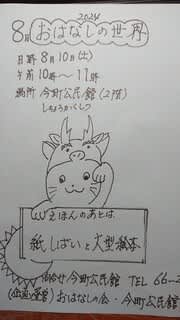 2024
8月 おはなしの世界
日時 8月10日(土)
午前10時〜11時
場所 今町公民館(2階)
しちょうかくしつ
えほんのあとは
紙しばいと大型絵本
今町公民館 TEL 66-2
(企画・運営) おはなしの会・今町公民館